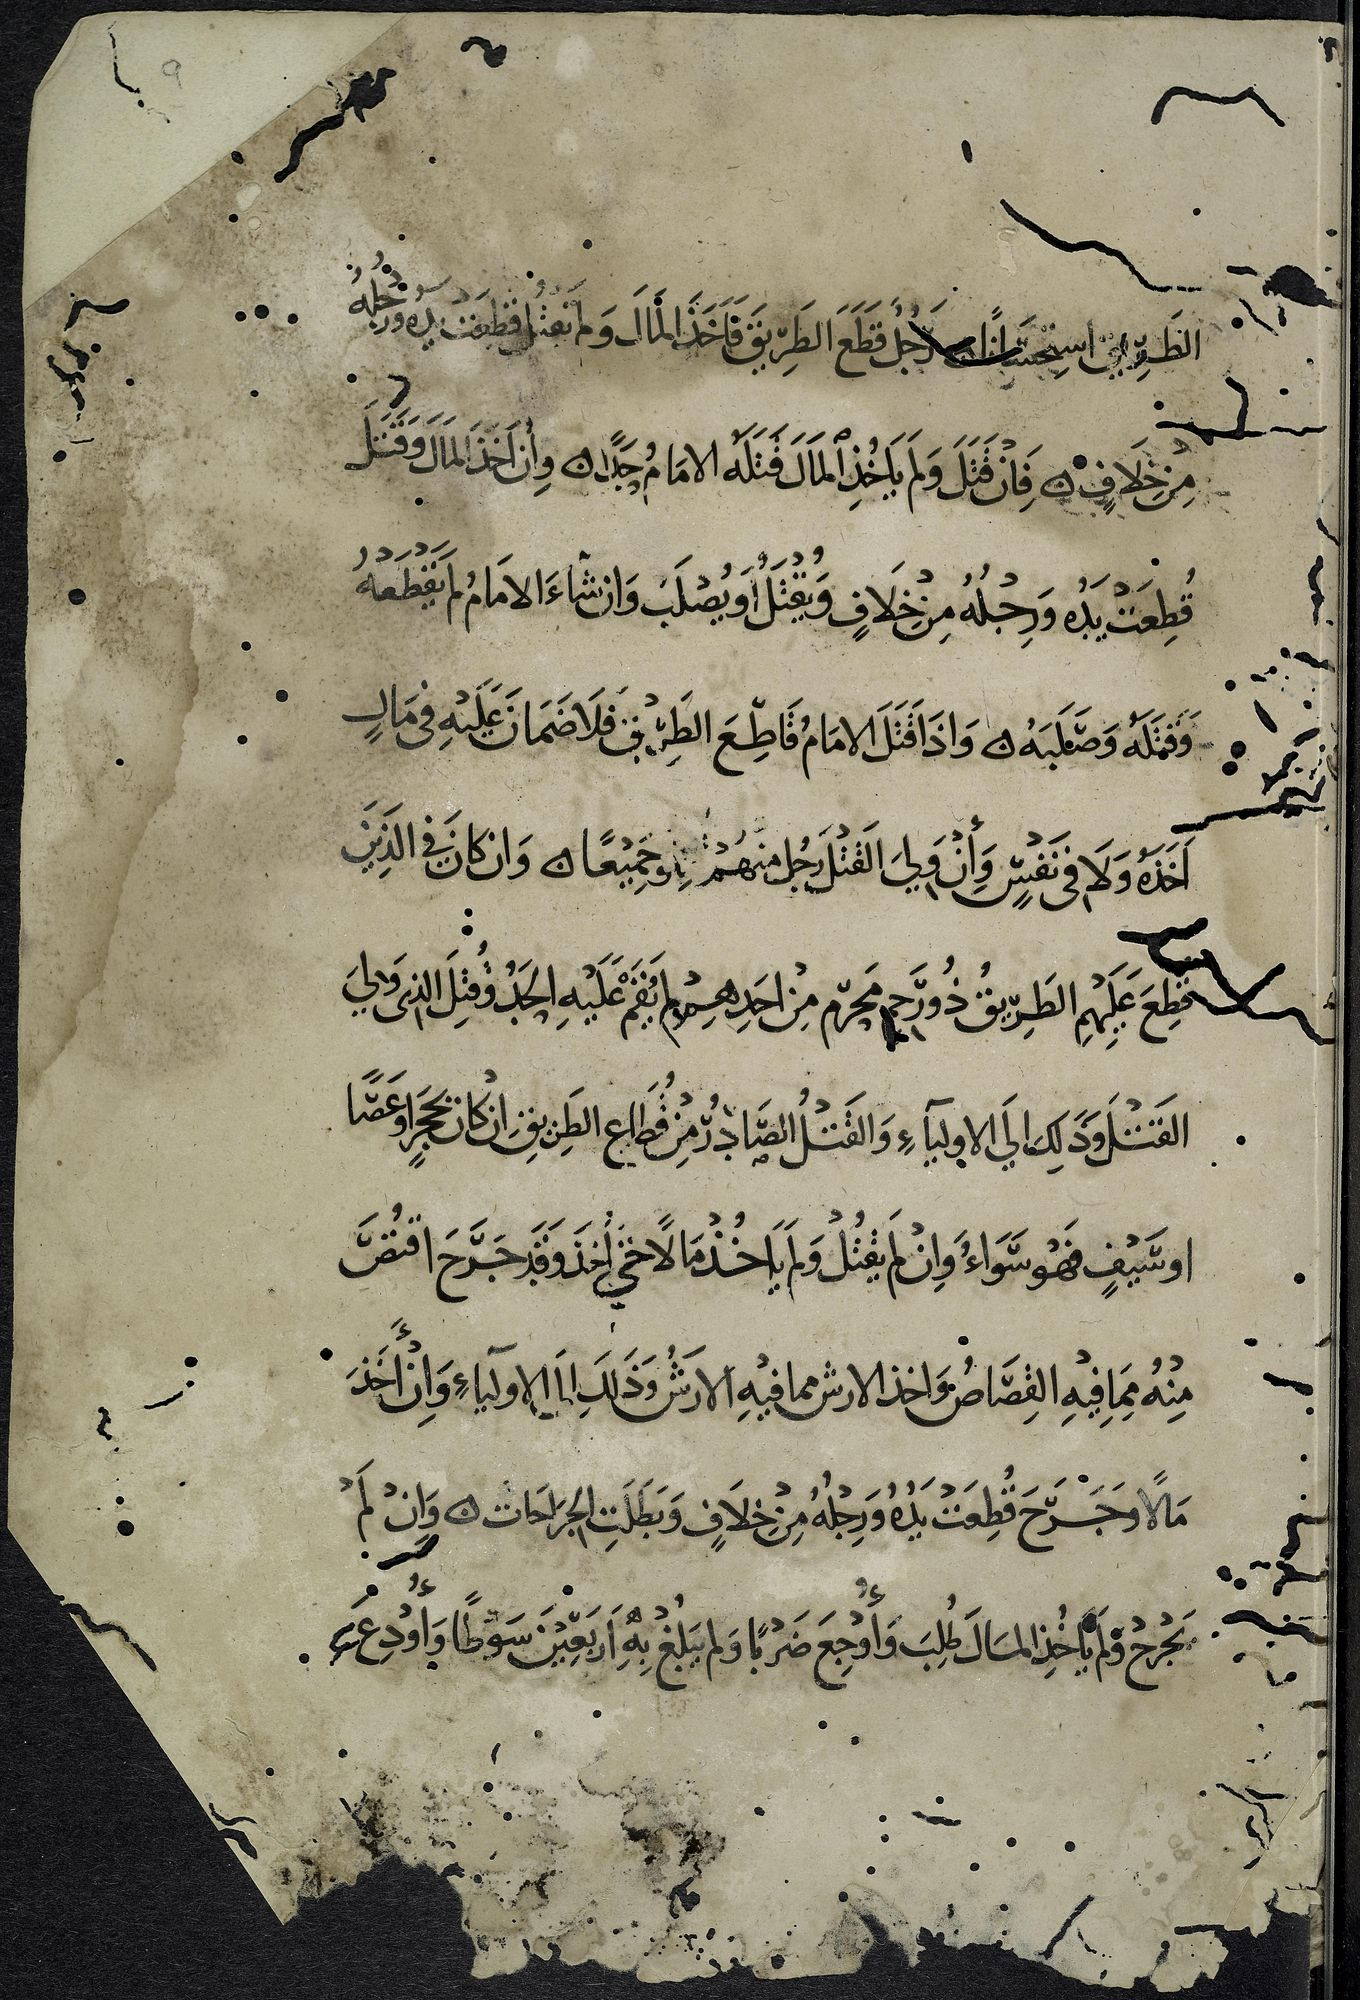 ٩
الطَّرِيقِ اسْتِحْسَانًا رَجُلٌ قَطَعَ الطَّرِيقَ فَأَخَذَ الْمَالَ وَلَمْ يَقْتُل قُطِعَت يَدُهُ وَرِجْلُهُ
مِنْ خِلَافٍ ۞ فَاِنْ قَتَلَ وَلَمْ يَاخُذِ الْمَالَ قَتَلَهُ الامَامُ حَدًّا ۞ وِاِن اَخَذَ الْمَالَ وَقَتَلَ
قُطِعَتْ يَدُهُ وَرِجْلُهُ مِنْ خِلَافٍ وَيُقْتَلُ أَوْ يُصْلَبُ وَان شَاءَ الامَامُ لَمْ يَقْطَعْهُ
وَقَتَلَهُ وَصَلَبَهُ ۞ وَاذَا قَتَلَ الامَامُ قَاطِعَ الطَّرِيقِ فَلَا ضَمَانَ عَلَيْهِ فِي مَالٍ
اَخَذَهُ وَلَا فِي نَفْسٍ وَاِنْ وَلِيَ الْقَتْلَ رَجُل مِنْهُمْ جَمِيْعًا ۞ وَان كَانَ فِي الَّذِيْنَ
قُطِعَ عَلَيْهِمِ الطَّرِيْقُ ذُو رَحِمٍ مَحْرَمٍ مِنْ اَحَدِهِمْ لَمْ يُقَمْ عَلَيْهِ الحَدُّ وَقُتِلَ الذِي وَلِيَ
الْقَتْلَ وَذَلِكَ اِلَى الاوليآءِ وَالْقَتْلُ الصَّادِرُ مِنْ قُطَّاعِ الطَّرِيقِ اِنْ كَانَ بِحَجَرٍ اَو عَصًا
او سَيْفٍ فَهُوَ سَوَاءٌ وَاِنْ لَمْ يَقْتُلْ وَلَمْ يَاخُذْ مَالًا حَتَّى اُخِذَ وَقَدْ جَرَحَ اقْتُصَّ
مِنْهُ مِمَا فِيْهِ الْقِصَاصُ وَاخذ الارش مما فيْهِ الارشُ وَذَلِكَ اِلَى الاوليآءِ وَاِنْ أَخَذَ
مَالًا وجَرَحَ قُطِعَتْ يَدُهُ وَرِجْلُهُ مِنْ خِلَافٍ وَبَطَلَتِ الْجِرَاحَات ۞ وَاِنْ لَمْ
يَجْرَحْ وَلَمْ يَاْخُذِ المَالَ طُلِبَ وَأُوْجِعَ ضَرْبًا وَلم يَبْلُغْ بِهِ اَرْبَعِيْنَ سَوْطًا وَأُوْدِعَ